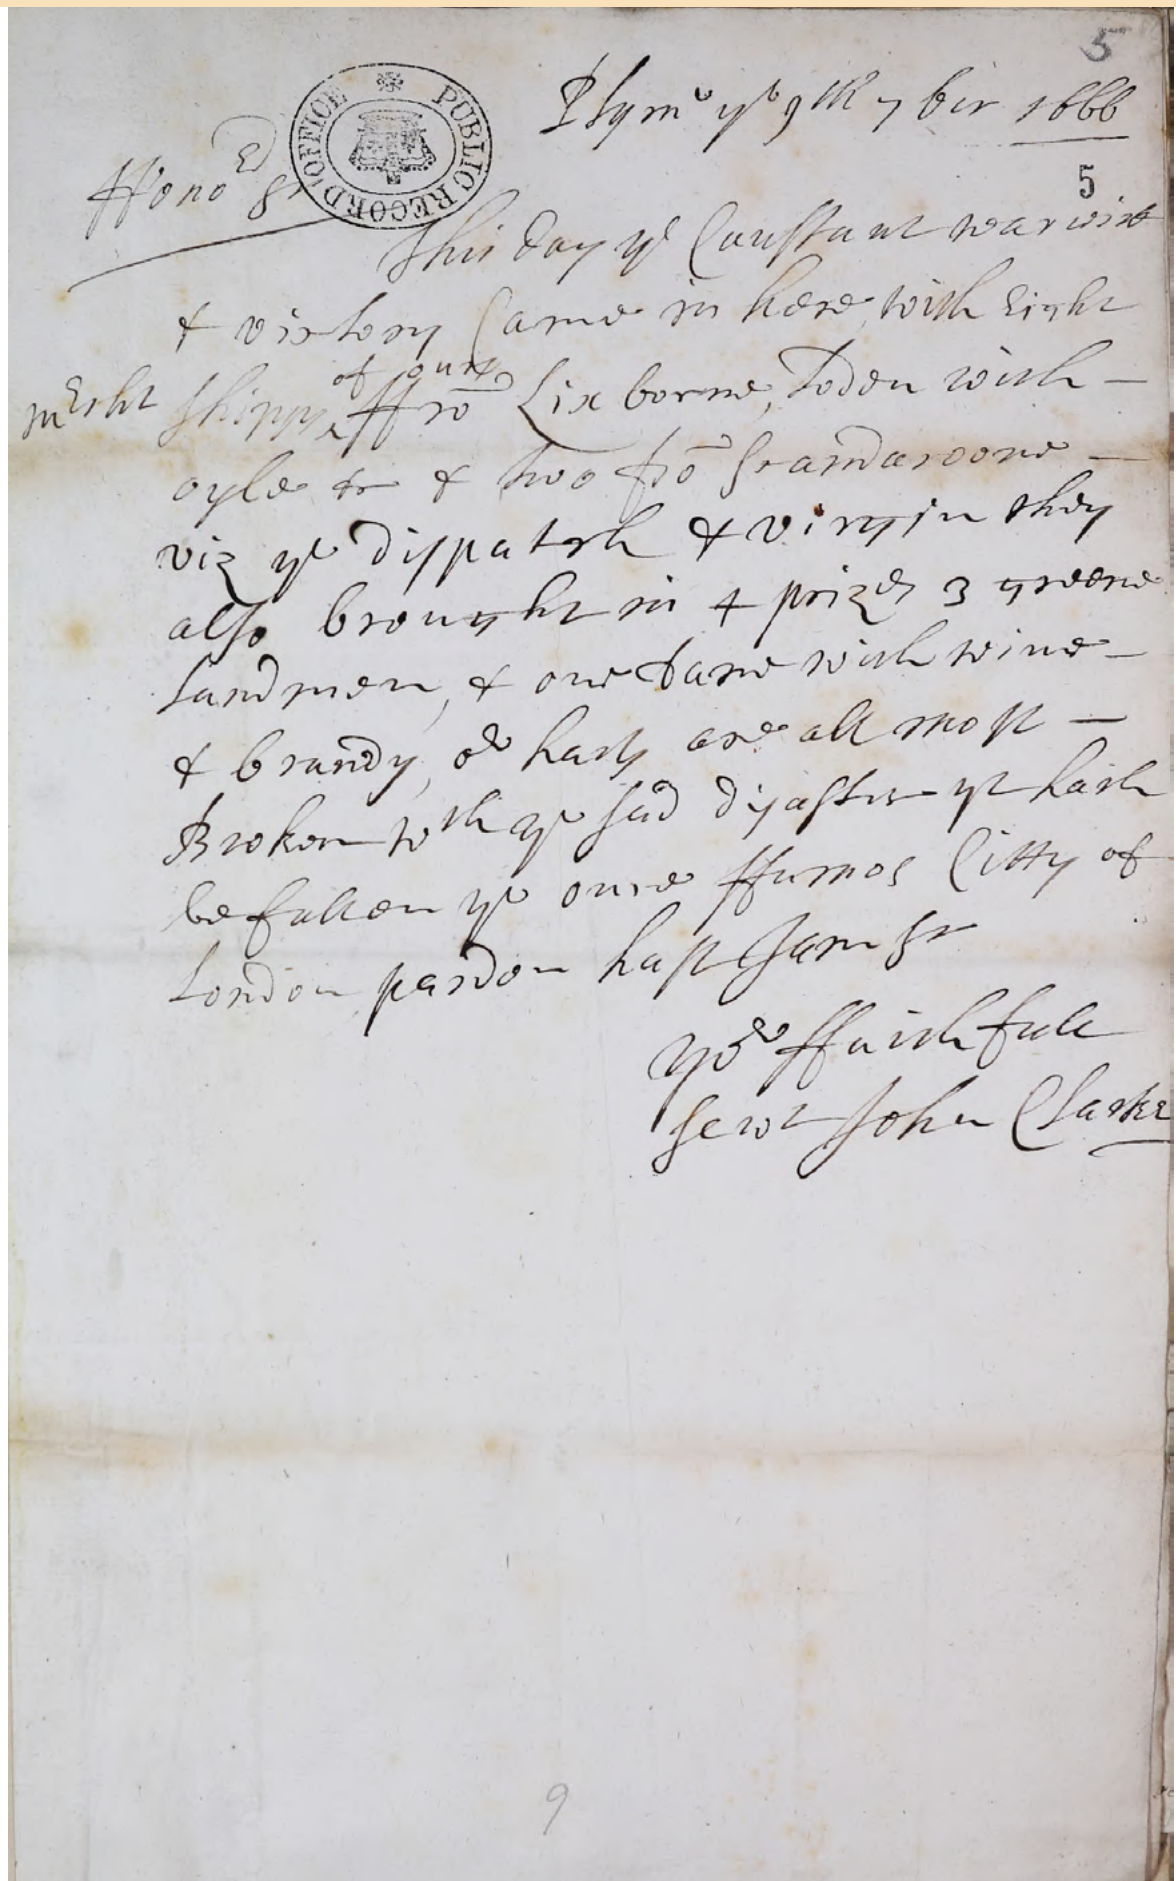 5
Plymo ye 9th 7ber 1666
PUBLIC RECORD OFFICE
5
Honod Sr
This day ye Constant warwick
& victory Came in here, with Eight
mercht shipps of ours ffrō Lixborne, Loden with
oyle & & two frō
viz ye dispatch & virgin they
also brought in 4 prizes 3 greene
landmen, & one Dane with wine
& brandy, or harts are all most
Broken wth ye sad disaster yt hath
befallen ye once ffamos Citty of
London pardon hast I am Sr
yor ffaithfull
servt John Clarke
9